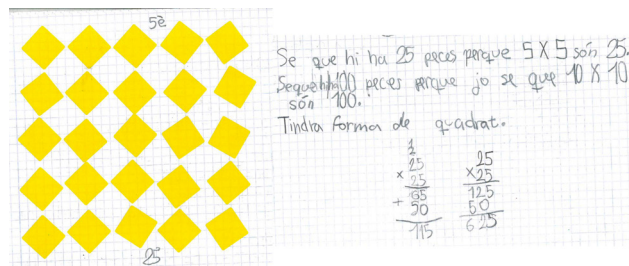 5è
25
Se que hi ha 25 peces perque 5 X 5 són 25.
Se que hi ha 100 peces perque jo se que 10 X 10
són 100.
Tindra forma de quadrat.
2
25
× 25
65
+ 50
115
25
×25
125
50
625